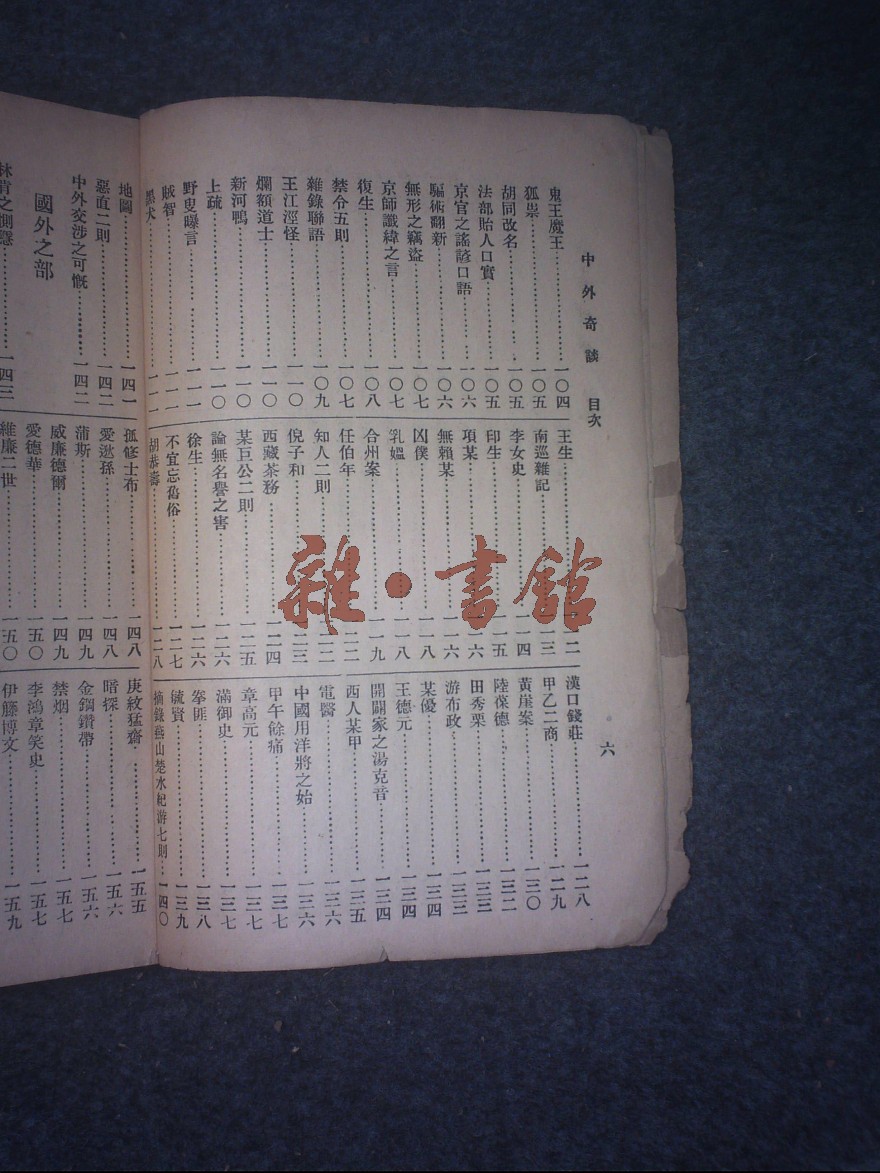 中外奇談 目次 六
鬼王魔王…………一〇四
狐祟…………一〇五
胡同改名…………一〇五
法部貽人口實…………一〇五
京官之謠諺口語…………一〇六
騙術翻新…………一〇六
無形之竊盜…………一〇七
京師讖緯之言…………一〇七
復生…………一〇八
禁令五則…………一〇七
雜錄聯語…………一〇九
王江涇怪…………一一〇
爛額道士…………一一〇
新河鴨…………一一〇
上疏…………一一〇
野叟曝言…………一一一
賊智…………一一一
黑犬…………一一一
王生…………二
南巡雜記…………一三
李女史…………一一四
印生…………一五
項某…………六
無賴某…………一六
凶僕…………一八
乳媼…………一一八
合州案…………一一九
任伯年…………一二二
知人二則…………二二
倪子和…………二三
西藏茶務…………二四
某巨公二則…………一二五
論無名譽之害…………一二六
徐生…………一二六
不宜忘舊俗…………一二七
胡恭壽…………一二八
漢口錢莊…………一二八
甲乙二商…………一二九
黃崖案…………一三〇
陸葆德…………一三二
田秀栗…………一三三
游布政…………一三三
某優…………一三四
王德元…………一三四
開闢家之湯克音…………一三四
西人某甲…………一三五
電醫…………一三六
中國用洋將之始…………一三六
甲午餘痛…………一三七
章高元…………一三七
滿御史…………一三七
拳匪…………一三八
毓賢…………一三九
摘錄燕山楚水紀游七則…一四〇
地圖…………一四一
惡直二則…………一四二
中外交涉之可慨…………一四二
國外之部
林肯之惻隱…………一四三
孤修士布…………一四八
愛遜孫…………一四八
蒲斯…………一四九
威廉德爾…………一四九
愛德華…………一五〇
維廉二世…………一五〇
庚紋猛齋…………一五五
暗探…………一五六
金鋼鑽帶…………一五六
禁烟…………一五七
李鴻章笑史…………一五七
伊藤博文…………一五九
雜·書館